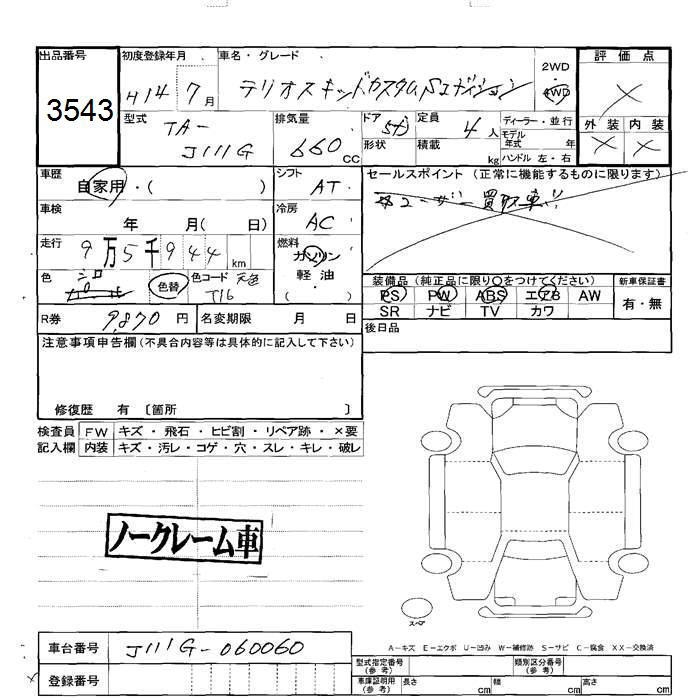 出品番号 初度登録年月 車名・グレード 2WD 評価点
3543 H14 7月 テリオスキッドカスタムSエディション 4WD ×
型式 TA- 排気量 ドア 5ドア 定員 4人 ディーラー・並行 外装 内装
J111G 660cc 形状 積載 kg モデル年式 年 × ×
ハンドル 左・右
車歴 自家用・( ) シフト AT セールスポイント(正常に機能するものに限ります)
車検 年 月( 日) 冷房 AC ユーザー買取車!!
走行 9万5千944km 燃料 ガソリン
色 シロ 色替 色コード 元色 軽油 装備品(純正品に限り○をつけてください) 新車保証書
T16 ( ) PS PW ABS エアB AW 有・無
R券 9,870円 名変期限 月 日 SR ナビ TV カワ
注意事項申告欄(不具合内容等は具体的に記入して下さい) 後日品
修復歴 有〔箇所 〕
検査員 FW キズ・飛石・ヒビ割・リペア跡・×要
記入欄 内装 キズ・汚レ・コゲ・穴・スレ・キレ・破レ
ノークレーム車
スペア
A-キズ E-エクボ U-凹み W-補修跡 S-サビ C-腐食 XX-交換済
車台番号 J111G-060060 型式指定番号(参考) 類別区分番号(参考)
登録番号 車庫証明用(参考) 長さ cm 幅 cm 高さ cm